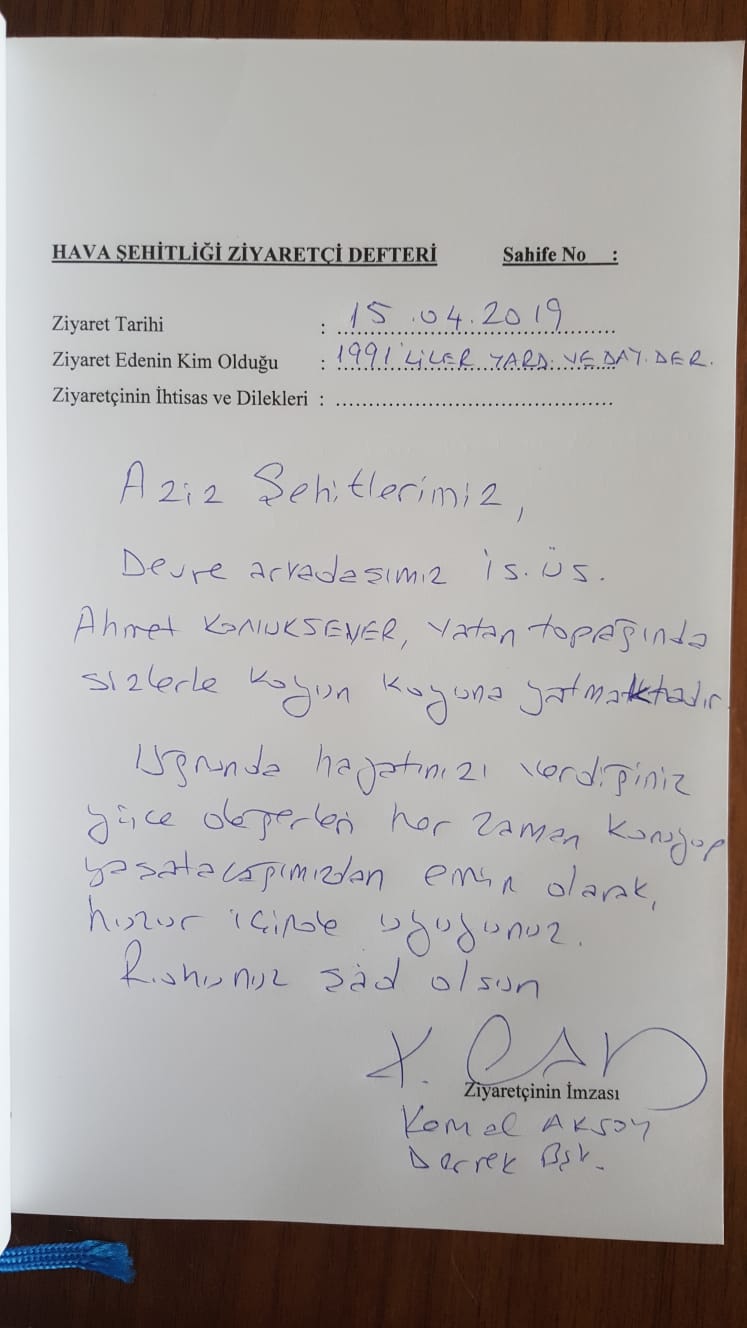 HAVA ŞEHİTLİĞİ ZİYARETÇİ DEFTERİ Sahife No :
Ziyaret Tarihi : 15.04.2019
Ziyaret Edenin Kim Olduğu : 1991'LİLER YARD. VE DAY. DER.
Ziyaretçinin İhtisas ve Dilekleri : ........................................
Aziz Şehitlerimiz,
Devre arkadaşımız İs. Üs.
Ahmet KONUKSEVER, vatan topağında
sizlerle koyun koyuna yatmaktadır
Uğrunda hayatınızı verdiğiniz
yüce değerleri her zaman koruyup
yaşatacağımızdan emin olarak,
huzur içinde uyuyunuz.
Ruhunuz şâd olsun
Ziyaretçinin İmzası
Kemal AKSOY
Dernek Bşk.